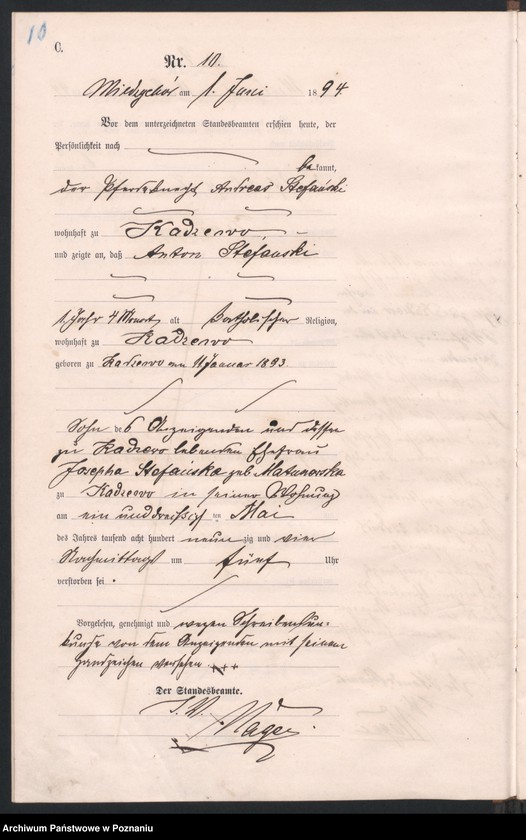 10
C.
Nr. 10.
am 1. Juni 1894
Vor dem unterzeichneten Standesbeamten erschien heute, der
Persönlichkeit nach
bekannt,
der Pferdeknecht Andreas Stefański
wohnhaft zu Kadzewo
und zeigte an, daß Anton Stefanski
1 Jahr 4 Monat alt katholischer Religion,
wohnhaft zu Kadzewo
geboren zu Kadzewo am 11 Januar 1893
Sohn des Anzeigenden und dessen
zu Kadzewo lebenden Ehefrau
Josepha Stefańska geb.
zu Kadzewo in seiner Wohnung
am ein und dreißig ten Mai
des Jahres tausend acht hundert neunzig und vier
Nachmittags um fünf Uhr
verstorben sei.
Vorgelesen, genehmigt und wegen Schreibensun-
kunde von dem Anzeigenden mit seinem
Handzeichen versehen +++
Der Standesbeamte.
J. V.
Archiwum Państwowe w Poznaniu